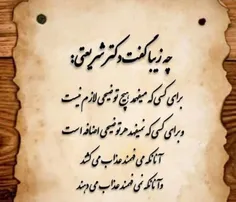 چه زیبا گفت دکتر شریعتی:
برای کسی که میفهمد هیچ توضیحی لازم نیست
و برای کسی که نمیفهمد هر توضیحی اضافه است
آنانکه می فهمند عذاب می کشند
و آنانکه نمی فهمند عذاب می دهند